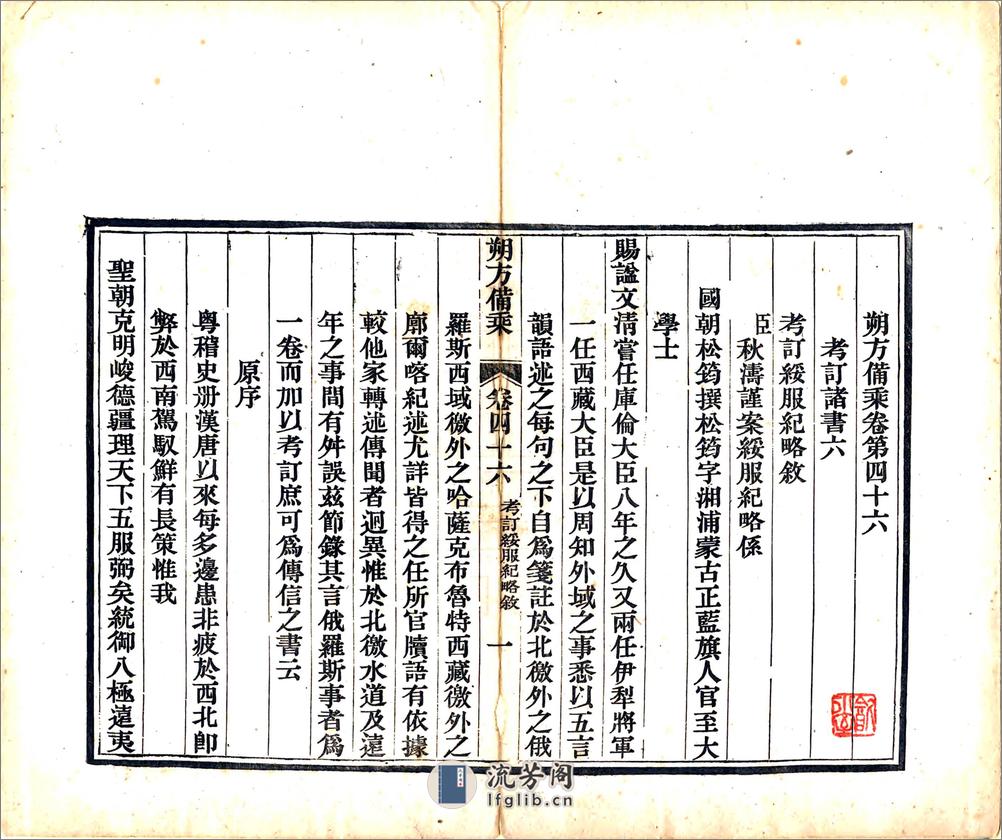 朔方備乘卷第四十六
考訂諸書六
考訂綏服紀略敘
臣秋濤謹案綏服紀略係
國朝松筠撰松筠字湘浦蒙古正藍旗人官至大
學士
賜諡文清嘗任庫倫大臣八年之久又兩任伊犁將軍
一任西藏大臣是以周知外域之事悉以五言
韻語述之每句之下自爲箋註於北徼外之俄
朔方備乘
卷四十六
考訂綏服紀略敘
一
羅斯西域徼外之哈薩克布魯特西藏徼外之
廓爾喀紀述尤詳皆得之任所官牘語有依據
較他家轉述傳聞者迥異惟於北徼水道及遠
年之事間有舛誤茲節錄其言俄羅斯事者爲
一卷而加以考訂庶可爲傳信之書云
原序
粵稽史册漢唐以來每多邊患非疲於西北卽
弊於西南駕馭鮮有長策惟我
聖朝克明峻德疆理天下五服弼矣統御八極遠夷
流芳阁
lfglib.cn